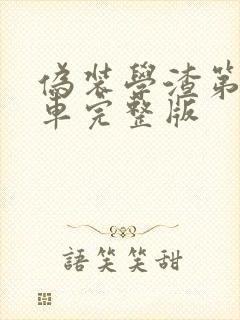 偽裝學渣第
車完整版
語笑笑甜